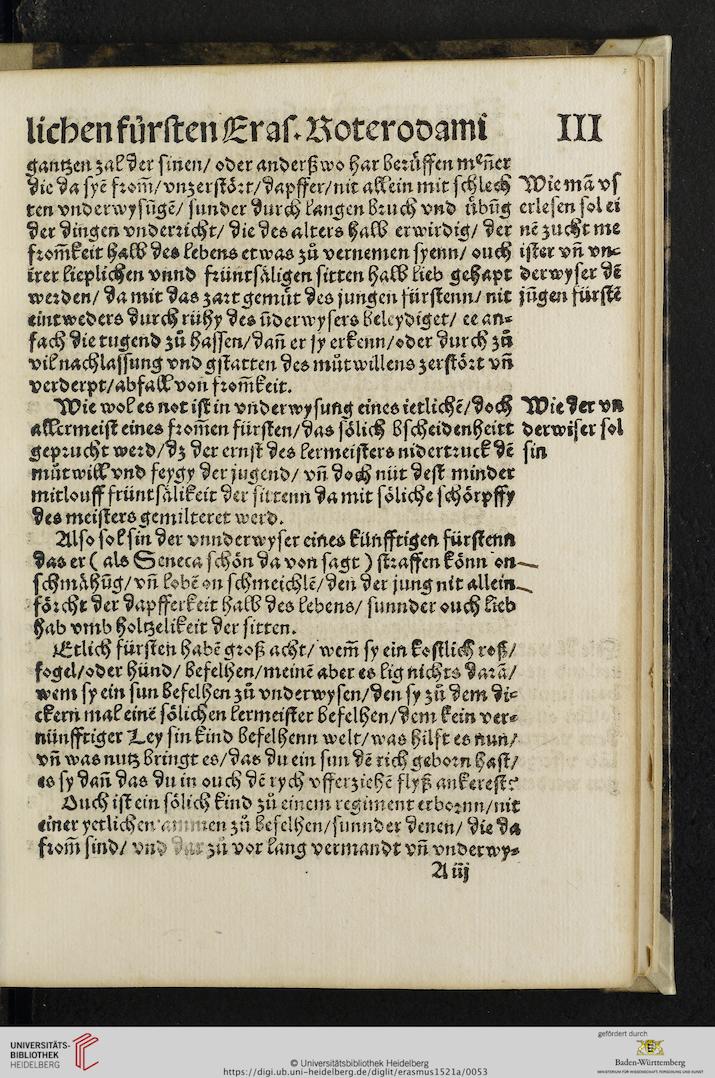 lichen fürsten Eras. Roterodami III
gantzen zal der sinen/ oder anderßwo har berüffen meñer
die da syē from̄/ vnzerstört/ dapffer/ nit allein mit schlech
ten vnderwysūgē/ sunder durch langen bruch vnd übūg
der dingen vnderricht/ die des alters halb erwirdig/ der
from̄keit halb des lebens etwas zů vernemen syenn/ ouch
irer lieplichen vnnd früntsäligen sitten halb lieb gehapt
werden/ da mit das zart gemüt des jungen fürstenn/ nit
eintweders durch rühy des ūderwysers beleydiget/ ee an=
fach die tugend zů hassen/ dañ er sy erkenn/ oder durch zů
vil nachlassung vnd gstatten des můtwillens zerstört vñ
verderpt/ abfall von from̄keit.
Wie man̄ vs
erlesen sol ei
nē zucht me
ister vñ vn=
derwyser dē
jūgen fürstē
Wie wol es not ist in vnderwysung eines ietlichē/ doch
allermeist eines from̄en fürsten/ das sölich bscheidenheitt
geprucht werd/ dz der ernst des lermeisters nidertruck dē
můtwill vnd feygy der jugend/ vñ doch nüt dest minder
mitlouff früntsälikeit der sittenn da mit söliche schörpffy
des meisters gemilteret werd.
Wie der vn
derwiser sol
sin
Also sol sin der vnnderwyser eines künfftigen fürstenn
das er ( als Seneca schön da von sagt ) straffen könn on
schmähūg/ vñ lobē on schmeichlē/ den der jung nit allein
förcht der dapfferkeit halb des lebens/ sunnder ouch lieb
hab vmb holtzelikeit der sitten.
Etlich fürsten habē groß acht/ wem̄ sy ein kostlich roß/
fogel/ oder hünd/ befelhen/ meinē aber es lig nichts darā/
wem sy ein sun befelhen zů vnderwysen/ den sy zů dem di=
ckern mal einē sölichen lermeister befelhen/ dem kein ver=
nünfftiger Ley sin kind befelhenn welt/ was hilft es nun/
vñ was nutz bringt es/ das du ein sun dē rich geborn hast/
es sy dañ das du in ouch dē rych vfferziehē flyß ankerest?
Ouch ist ein sölich kind zů einem regiment erbornn/ nit
einer yetlichen ammen zů befelhen/ sunnder denen/ die da
from̄ sind/ vnd dar zů vor lang vermandt vñ vnderwy=
A iij
UNIVERSITÄTS-
BIBLIOTHEK
HEIDELBERG
© Universitätsbibliothek Heidelberg
https://digi.ub.uni-heidelberg.de/diglit/erasmus1521a/0053
gefördert durch
Baden-Württemberg
MINISTERIUM FÜR WISSENSCHAFT, FORSCHUNG UND KUNST